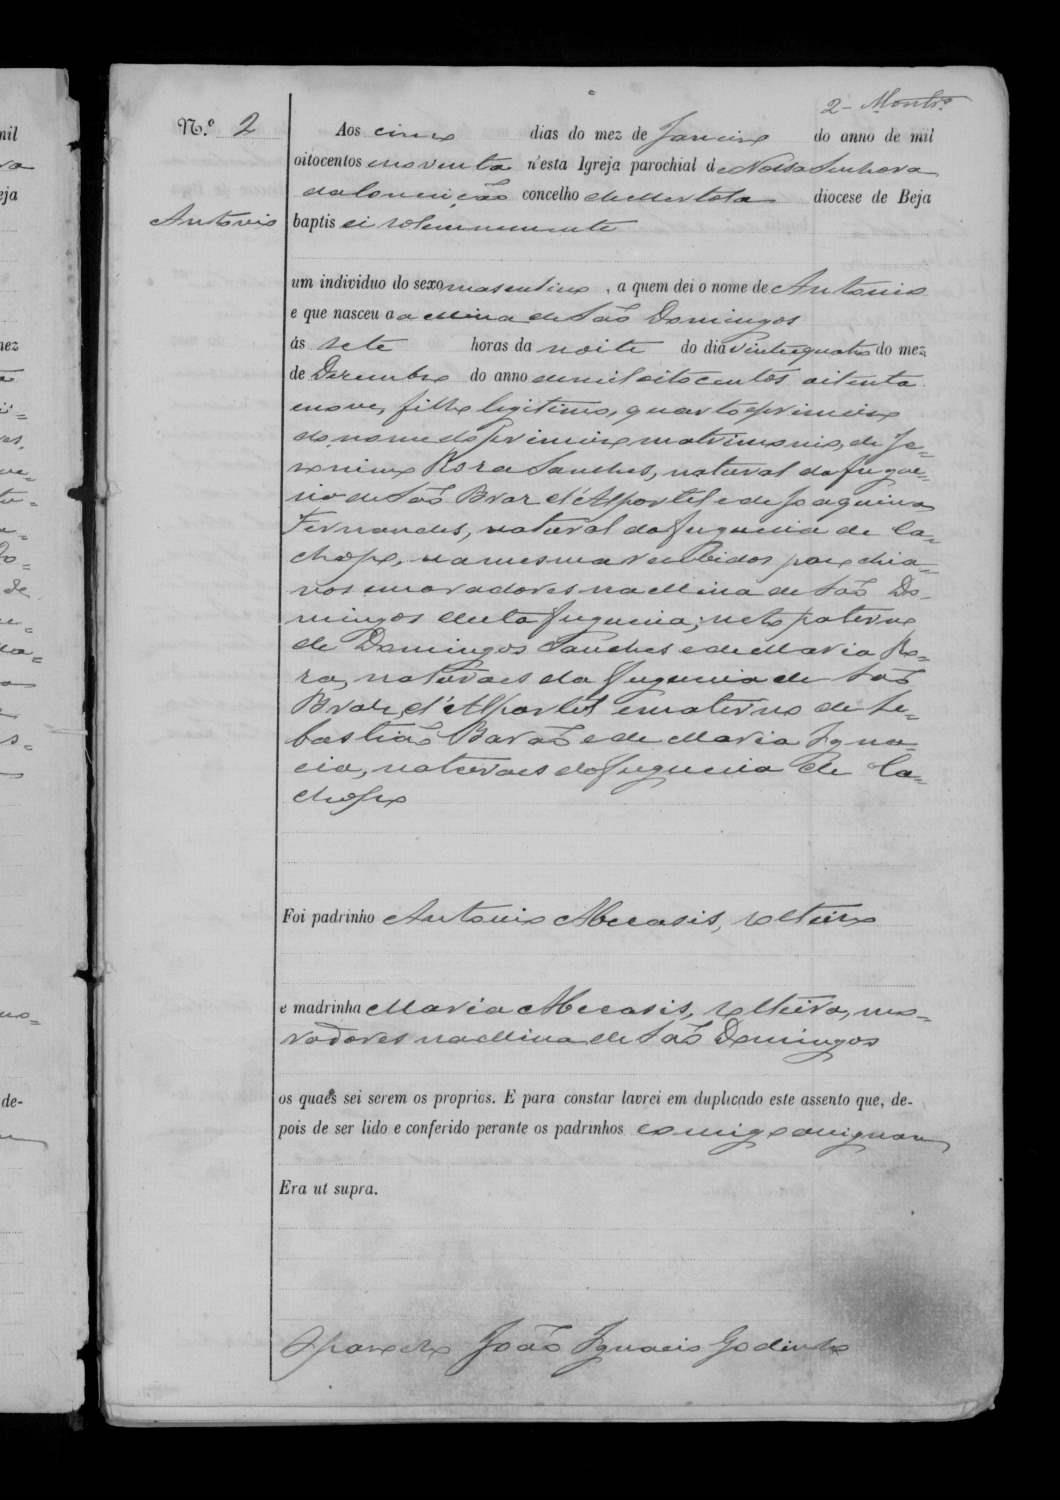 2 - Montr.º
N.º 2
Aos cinco dias do mez de Janeiro do anno de mil
oitocentos e noventa n'esta Igreja parochial de Nossa Senhora
da Conceição concelho de Mertola diocese de Beja
Antonio
baptisei solemnemente
um individuo do sexo masculino, a quem dei o nome de Antonio
e que nasceu a a Mina de São Domingos
ás sete horas da noite do dia vinte e quatro do mez
de Dezembro do anno de mil oitocentos oitenta
e nove, filho legitimo, quarto e primeiro
do nome do primeiro matrimonio, de Je-
ronimo Roza Sanches, natural da fregue-
zia de São Braz d'Alportel e de Joaquina
Fernandes, natural da freguezia de Ca-
chopo, na mesma recebidos parochia-
nos moradores na Mina de São Do-
mingos desta freguezia; neto paterno
de Domingos Sanches e de Maria Ro-
za, naturaes da freguezia de São
Braz d'Alportel e materno de Se-
bastião Barão e de Maria Igna-
cia, naturaes da freguezia de Ca-
chopo
Foi padrinho Antonio solteiro
e madrinha Maria solteira, mo-
radores na Mina de São Domingos
os quaes sei serem os proprios. E para constar lavrei em duplicado este assento que, de-
pois de ser lido e conferido perante os padrinhos comigo assignam
Era ut supra.
O parocho João Ignacio Godinho